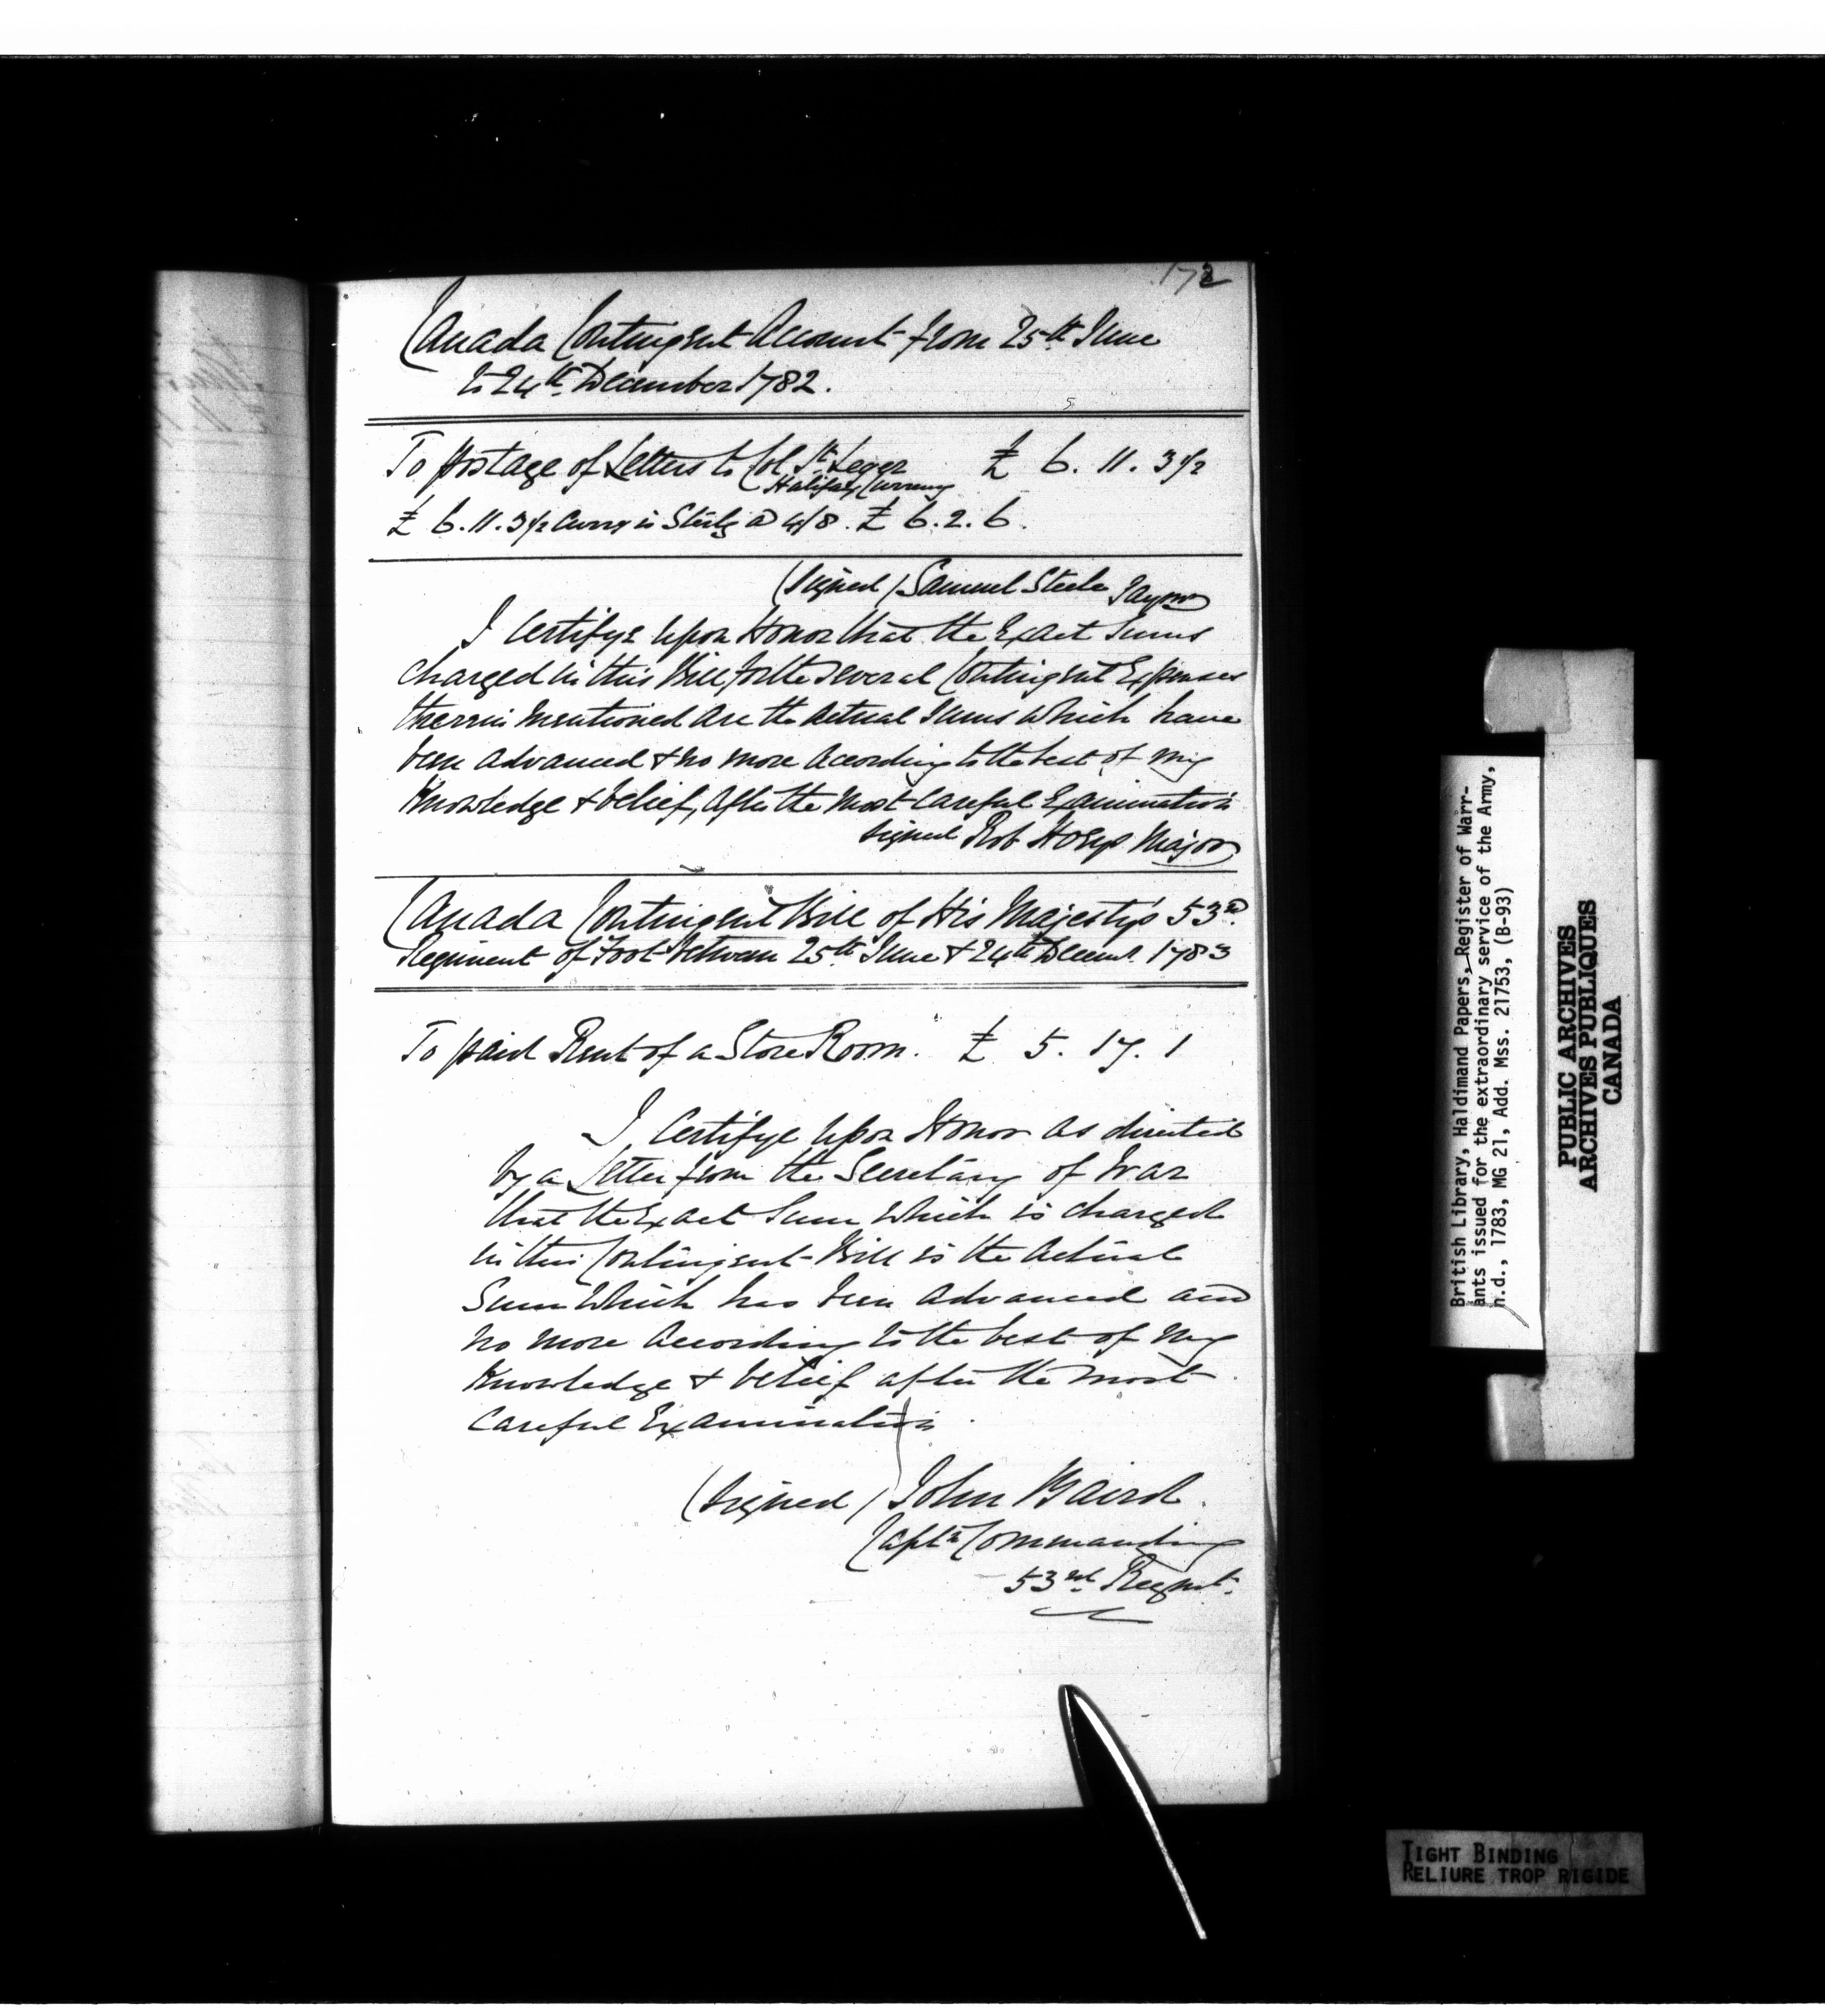 172
Canada Contingent Account from 25th June
to 24th December 1782.
To postage of Letters to Col St. Leger £ 6. 11. 3 1/2
Halifax Currency
£ 6. 11. 3 1/2 Curry is Sterlg @ 4/8. £ 6. 2. 6.
(signed) Samuel Steele Paymr
I Certifye upon Honor that the Exact Sums
charged in this Bill for the several Contingent Expenses
therein mentioned are the actual sums which have
been advanced & no more according to the best of my
Knowledge & belief, after the most careful Examination
signed Rob Hoyes Major
Canada Contingent Bill of His Majesty's 53d.
Regiment of Foot between 25th June & 24th Decemr. 1783
To paid Rent of a Store Room. £ 5. 17. 1
I Certifye upon Honor as directed
by a Letter from the Secretary of War
that the Exact Sum which is charged
in this Contingent Bill is the actual
Sum which has been advanced and
no more according to the best of my
Knowledge & belief after the most
careful Examination.
(signed) John Baird.
Captn Commanding
53rd Regmt.
British Library, Haldimand Papers, Register of Warr-
ants issued for the extraordinary service of the Army,
n.d., 1783, MG 21, Add. Mss. 21753, (B-93)
PUBLIC ARCHIVES
ARCHIVES PUBLIQUES
CANADA
TIGHT BINDING
RELIURE TROP RIGIDE